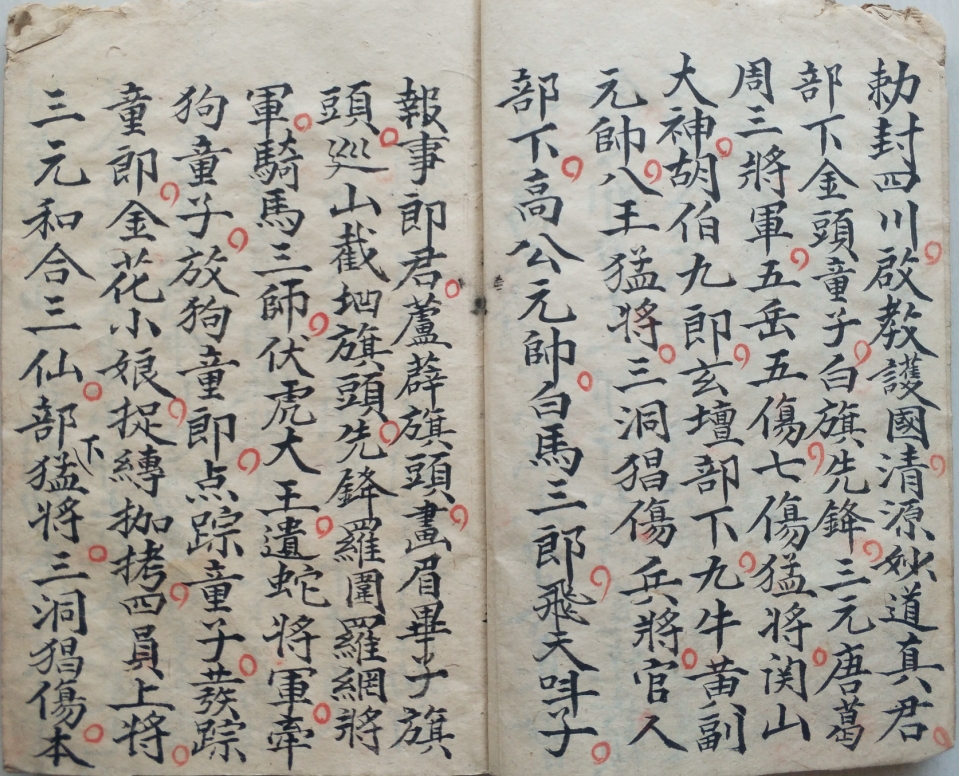 勅封四川啟教護國清源妙道真君
部下金頭童子白旗先鋒三元唐葛
周三將軍五岳五傷七傷猛将関山
大神胡伯九郎玄壇部下九牛黄副
元帥八王猛将三洞猖傷兵將官人
部下高公元帥白馬三郎飛天吽子
報事郎君蘆薜旗頭畫眉畢子旗
頭廵山截地旗頭先鋒羅圍羅網將
軍騎馬三師伏虎大王遣蛇將軍牽
狗童子放狗童郎点踪童子發踪
童郎金花小娘捉縛拁拷四員上將
三元和合三仙部下猛将三洞猖傷本